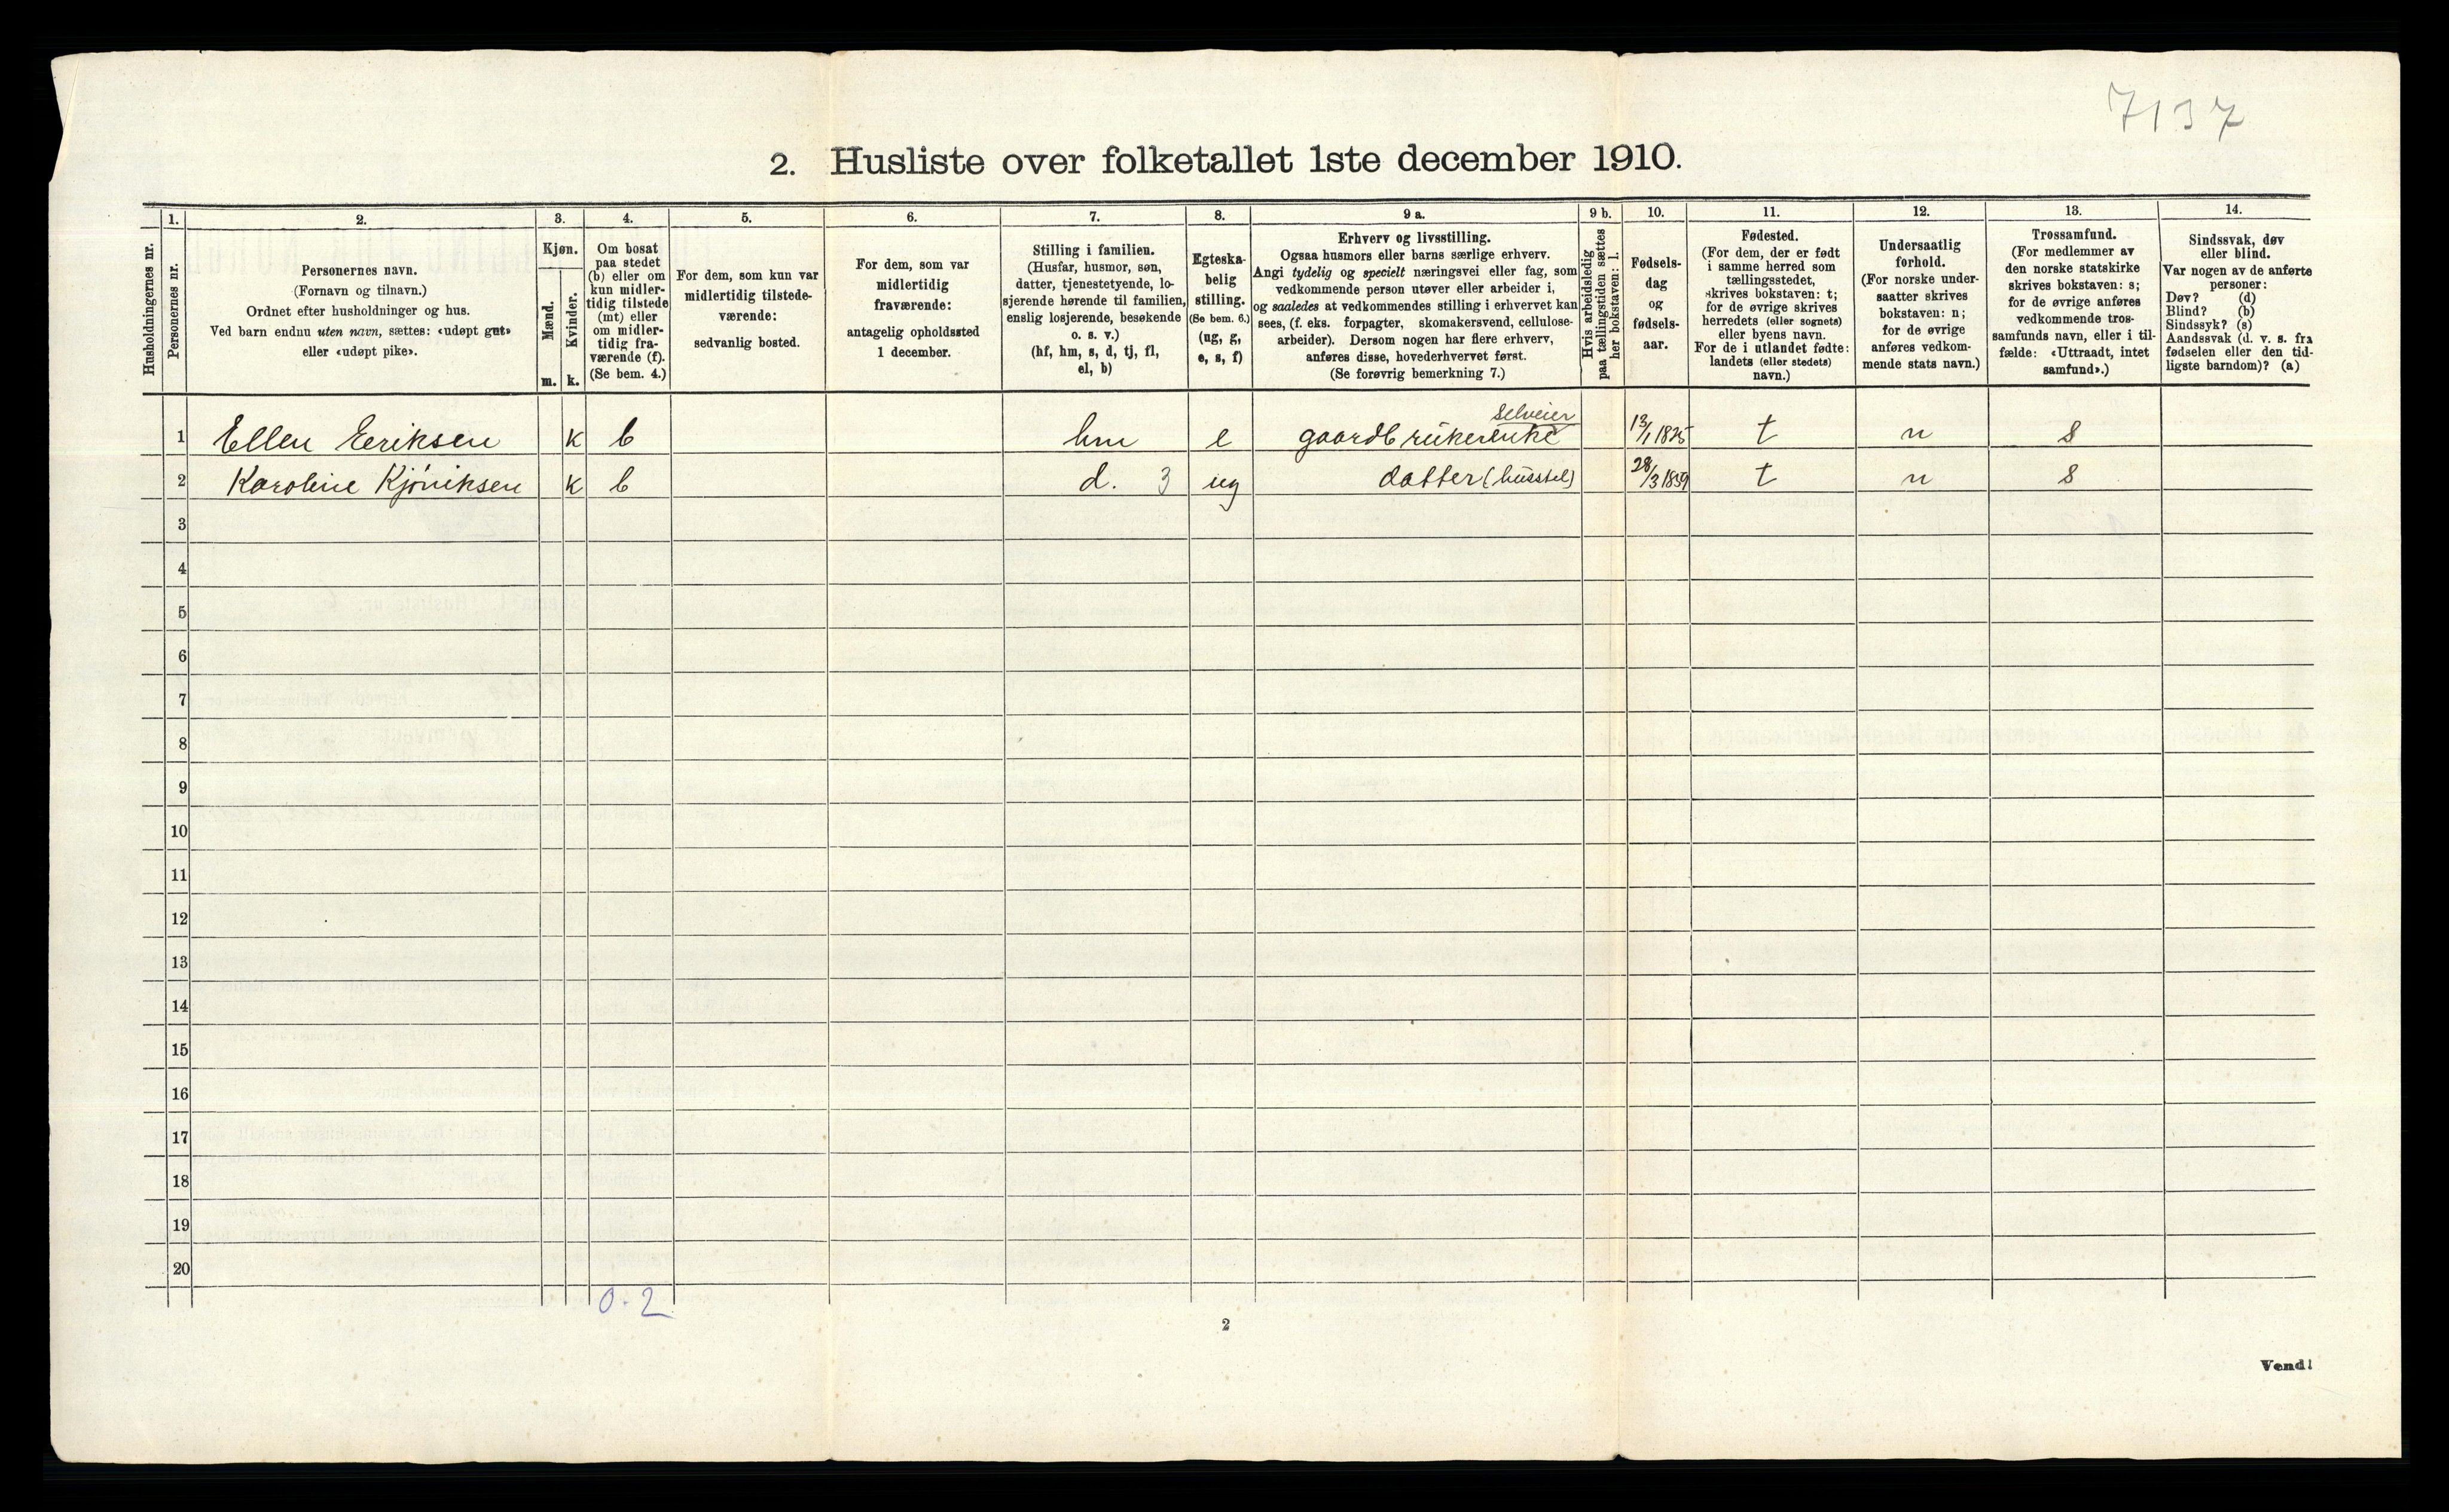 7137
2. Husliste over folketallet 1ste december 1910.
Husholdningernes nr.
1.
Personernes nr.
2.
Personernes navn.
(Fornavn og tilnavn.)
Ordnet efter husholdninger og hus.
Ved barn endnu uten navn, sættes: «udøpt gut»
eller «udøpt pike».
3.
Kjøn.
Mænd.
Kvinder.
m. k.
4.
Om bosat
paa stedet
(b) eller om
kun midler-
tidig tilstede
(mt) eller
om midler-
tidig fra-
værende (f).
(Se bem. 4.)
5.
For dem, som kun var
midlertidig tilstede-
værende:
sedvanlig bosted.
6.
For dem, som var
midlertidig
fraværende:
antagelig opholdssted
1 december.
7.
Stilling i familien.
(Husfar, husmor, søn,
datter, tjenestetyende, lo-
sjerende hørende til familien,
enslig losjerende, besøkende
o. s. v.)
(hf, hm, s, d, tj, fl,
el, b)
8.
Egteska-
belig
stilling.
(Se bem. 6.)
(ug, g,
e, s, f)
9 a.
Erhverv og livsstilling.
Ogsaa husmors eller barns særlige erhverv.
Angi tydelig og specielt næringsvei eller fag, som
vedkommende person utøver eller arbeider i,
og saaledes at vedkommendes stilling i erhvervet kan
sees, (f. eks. forpagter, skomakersvend, cellulose-
arbeider). Dersom nogen har flere erhverv,
anføres disse, hovederhvervet først.
(Se forøvrig bemerkning 7.)
9 b.
Hvis arbeidsledig
paa tællingstiden sættes
her bokstaven: l.
10.
Fødsels-
dag
og
fødsels-
aar.
11.
Fødested.
(For dem, der er født
i samme herred som
tællingsstedet,
skrives bokstaven: t;
for de øvrige skrives
herredets (eller sognets)
eller byens navn.
For de i utlandet fødte:
landets (eller stedets)
navn.)
12.
Undersaatlig
forhold.
(For norske under-
saatter skrives
bokstaven: n;
for de øvrige
anføres vedkom-
mende stats navn.)
13.
Trossamfund.
(For medlemmer av
den norske statskirke
skrives bokstaven: s;
for de øvrige anføres
vedkommende tros-
samfunds navn, eller i til-
fælde: «Uttraadt, intet
samfund».)
14.
Sindssvak, døv
eller blind.
Var nogen av de anførte
personer:
Døv? (d)
Blind? (b)
Sindssyk? (s)
Aandssvak (d. v. s. fra
fødselen eller den tid-
ligste barndom)? (a)
selveier
1 Ellen Eeriksen k b hm e gaardbrukerenke 12/1 1825 t n s
2 Karoline Kjóniksen k b d. 3 ug datter (husstel) 28/3 1859 t n s
3
4
5
6
7
8
9
10
11
12
13
14
15
16
17
18
19
20
0-2
2
Vend!